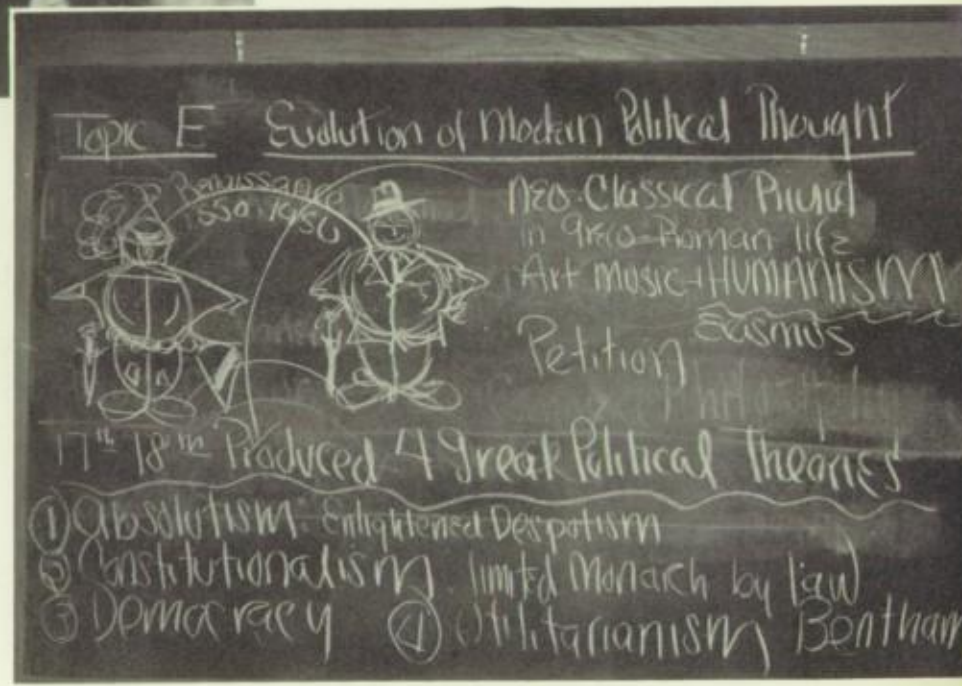 Topic E Evolution of Modern Political Thought
Renaissance
neo-Classical
in Greco-Roman life
Art music + HUMANISM
Erasmus
Petition
17th 18th Produced 4 great Political Theories
① Absolutism: Enlightened Despotism
② Constitutionalism. limited Monarch by law
③ Democracy ④ Utilitarianism Bentham